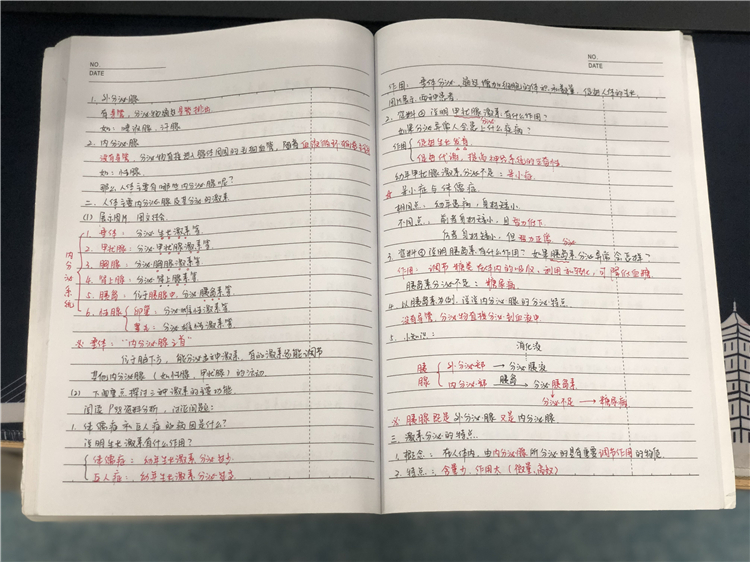 NO.
DATE
1. 外分泌腺
有导管,分泌物通过导管排出
如:唾液腺、汗腺
2. 内分泌腺
没有导管,分泌物直接进入腺体周围的毛细血管,随着血液循环输送至全身
如:性腺
那么,人体主要有哪些内分泌腺呢?
二、人体主要内分泌腺及其分泌的激素
(1) 展示图片 图文结合
内分泌系统
1. 垂体:分泌生长激素等
2. 甲状腺:分泌甲状腺激素等
3. 胸腺:分泌胸腺激素等
4. 肾上腺:分泌肾上腺素等
5. 胰岛:位于胰腺中,分泌胰岛素等
6. 性腺 卵巢:分泌雌性激素等
睾丸:分泌雄性激素等
※ 垂体:"内分泌腺之首"
位于脑下方,能分泌多种激素,有的激素还能调节
其他内分泌腺(如性腺、甲状腺)的活动
(2) 下面重点探讨三种激素的主要功能
阅读P资料分析,讨论问题:
1. 侏儒症和巨人症的病因是什么?
说明生长激素有什么作用?
侏儒症:幼年生长激素分泌过少
巨人症:幼年生长激素分泌过多
NO.
DATE
作用:垂体分泌,能促增加细胞的体积和数量,促进人体的生长
图片展示两种患者
2. 资料② 说明甲状腺激素有什么作用?
如果分泌异常人会患上什么疾病?
作用 促进生长发育
促进代谢,提高神经系统的兴奋性
幼年甲状腺激素分泌不足:呆小症
☆ 呆小症与侏儒症
相同点:幼年患病,身材矮小
不同点:前者身材矮小,且智力低下
后者身材矮小,但智力正常
3. 资料③ 说明胰岛素有什么作用?如果胰岛素分泌异常会怎样?
作用:调节糖在体内的吸收、利用和转化,可降低血糖
胰岛素分泌不足:糖尿病
4. 以胰岛素为例,谈谈内分泌腺的分泌特点
没有导管,分泌物直接分泌到血液中
5. 小知识:
消化液
胰腺 外分泌部 → 分泌胰液
内分泌部 胰岛 → 分泌胰岛素
分泌不足 → 糖尿病
※ 胰腺既是外分泌腺又是内分泌腺
三、激素分泌的特点
1. 概念:在人体内,由内分泌腺所分泌的具有重要调节作用的物质
2. 特点:含量少、作用大(微量、高效)